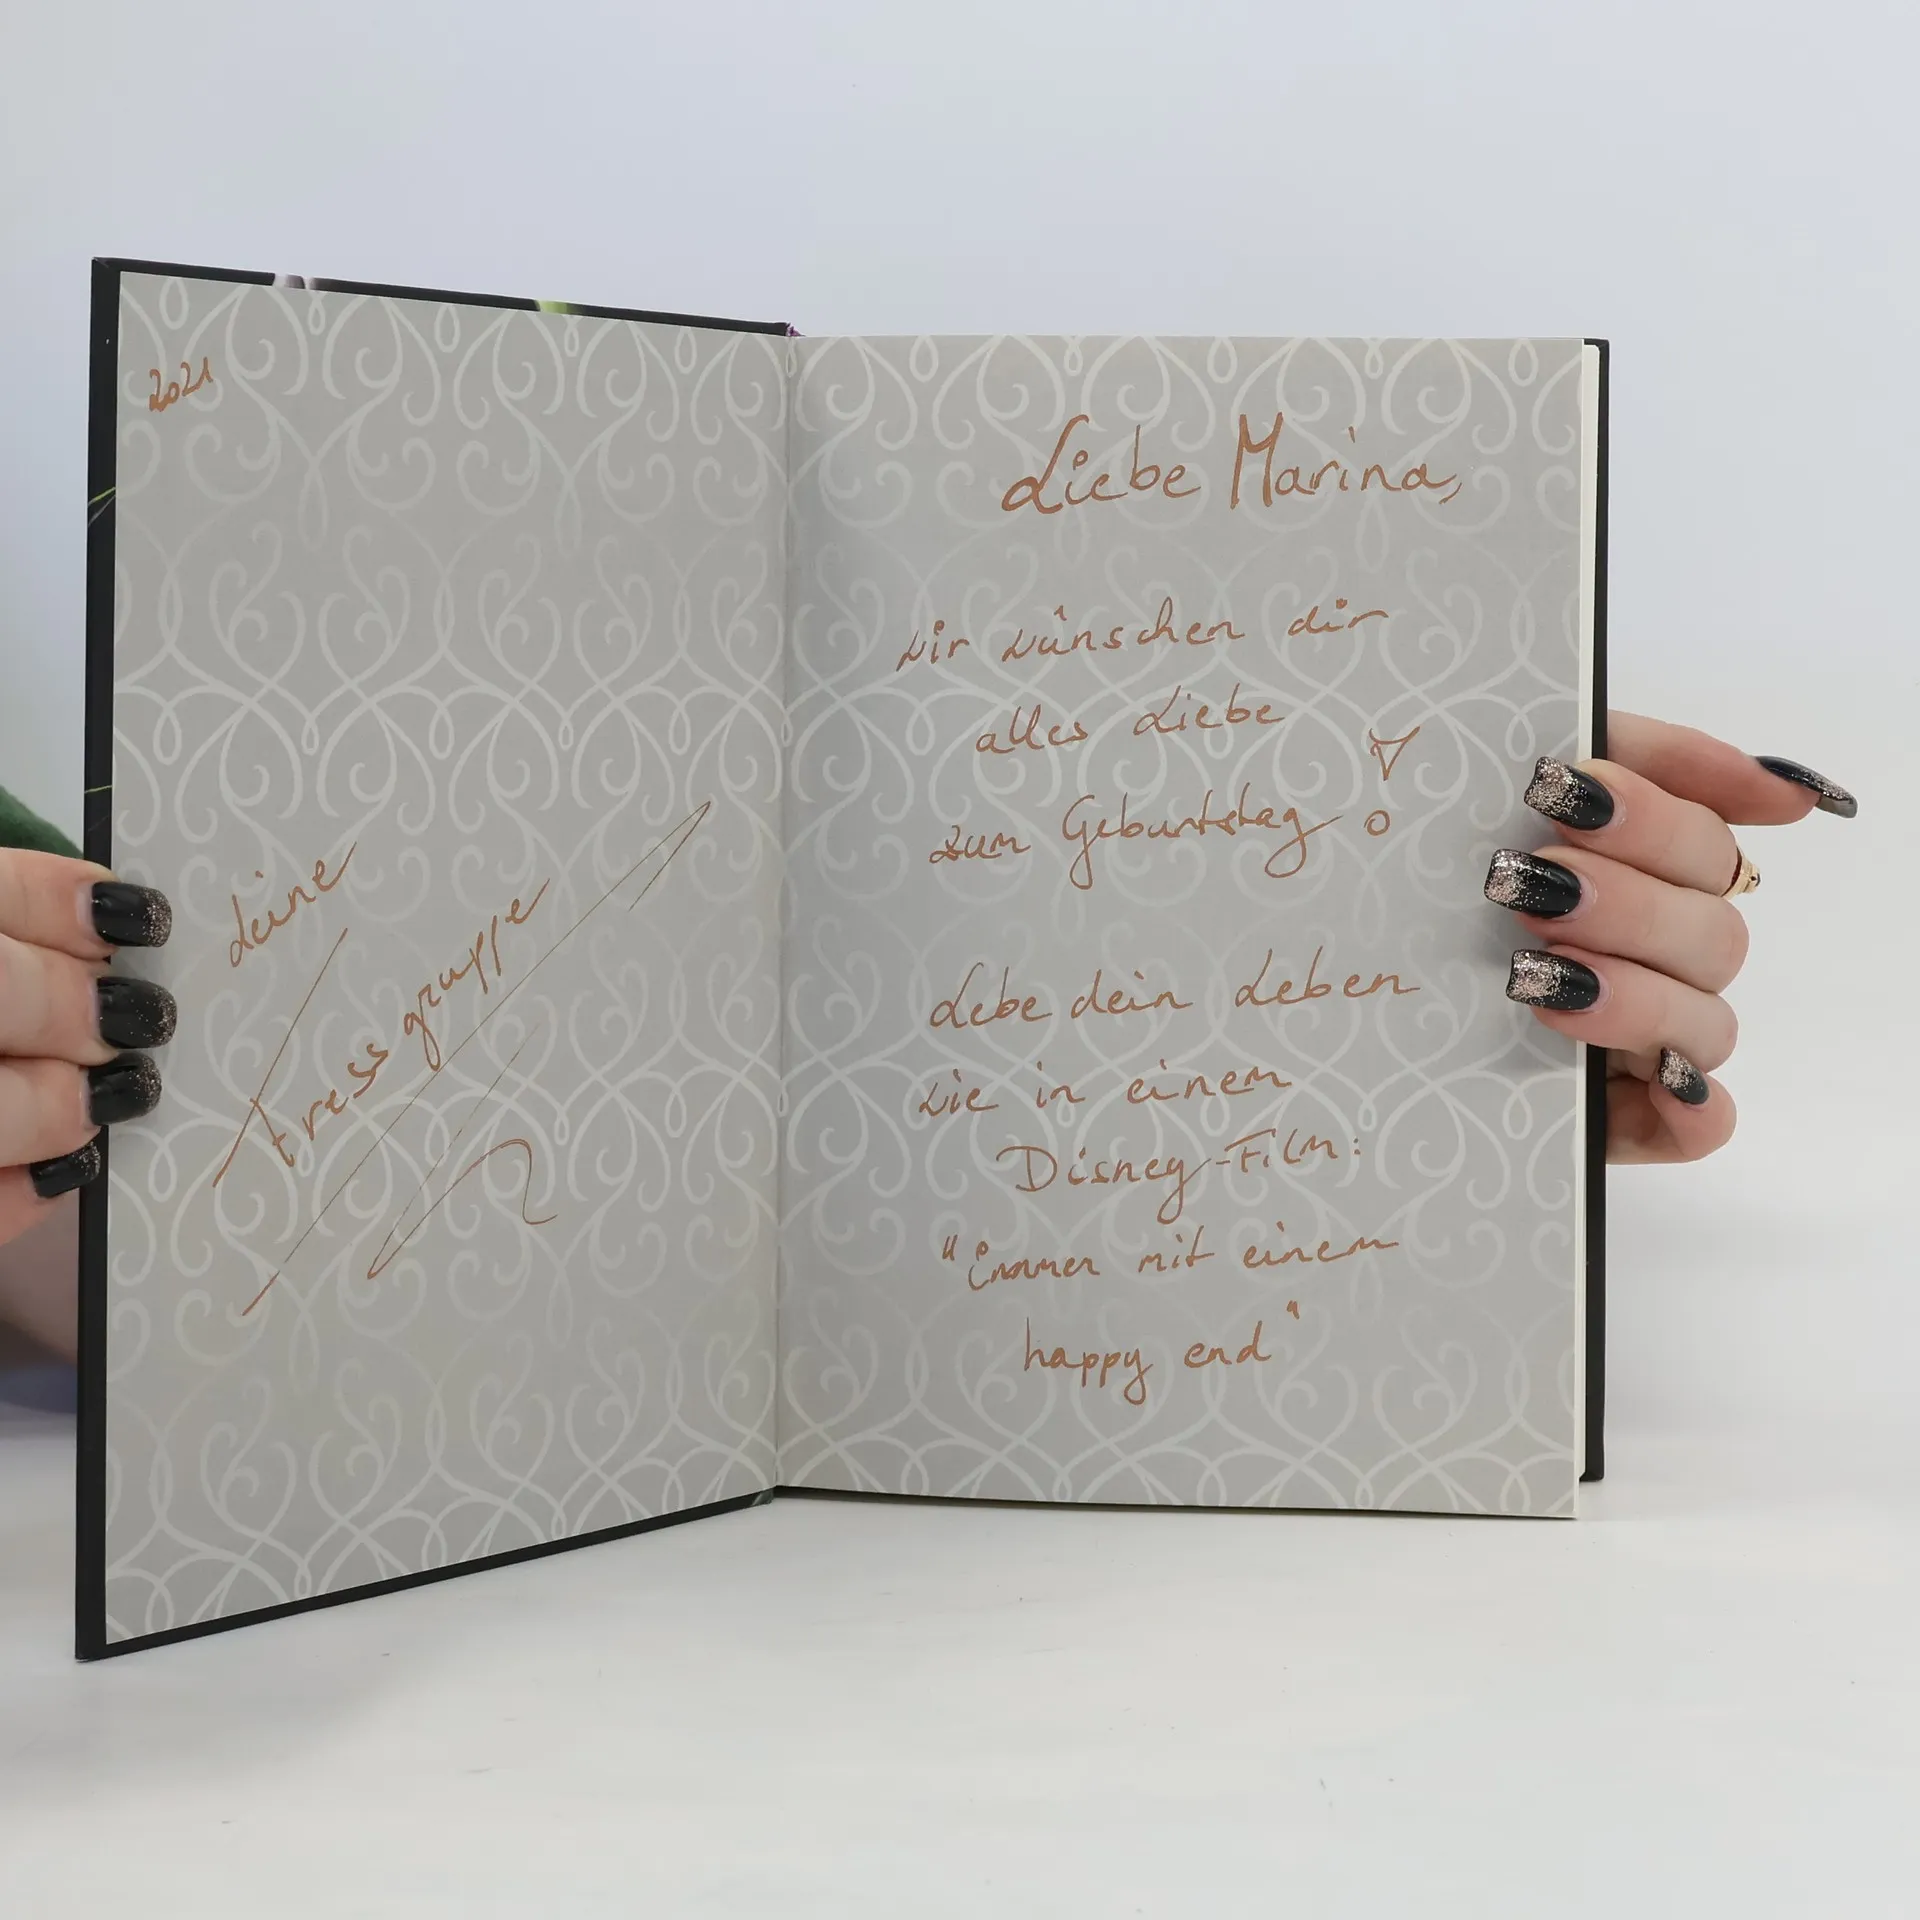 2021
deine
fressgruppe
Liebe Marina,
wir wünschen dir
alles Liebe
zum Geburtstag!
Lebe dein Leben
wie in einem
Disney-Film:
"immer mit einem
happy end"